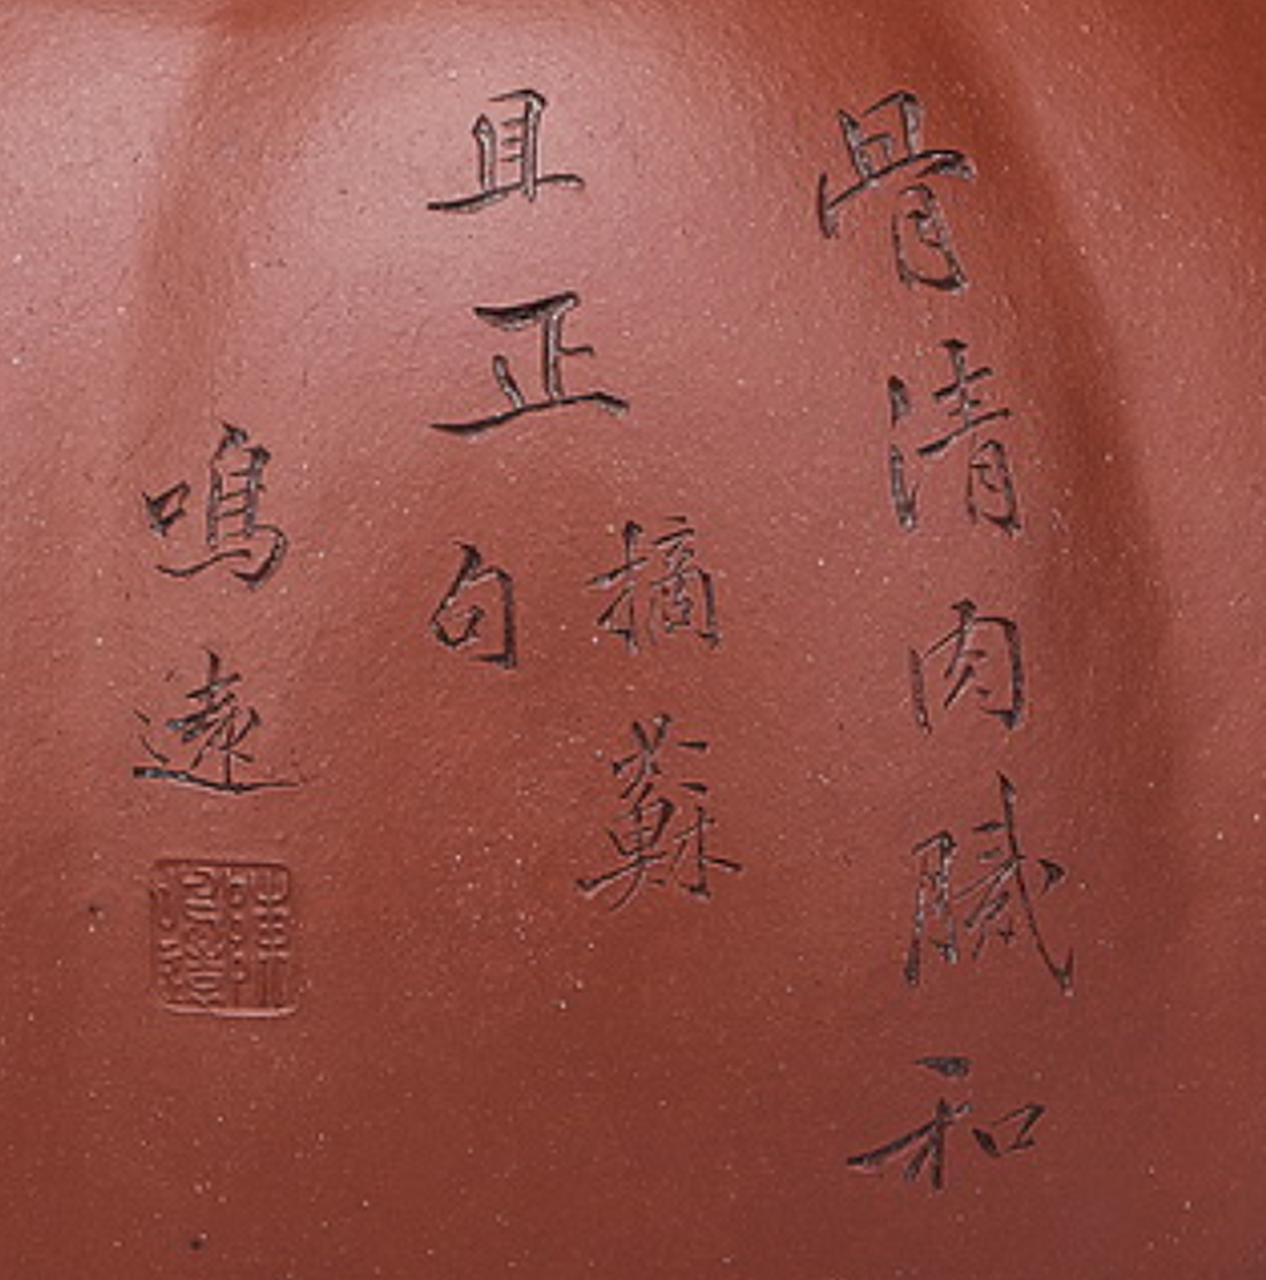 骨清肉膩和
且正
摘蘇
句
鳴遠
陳鳴遠